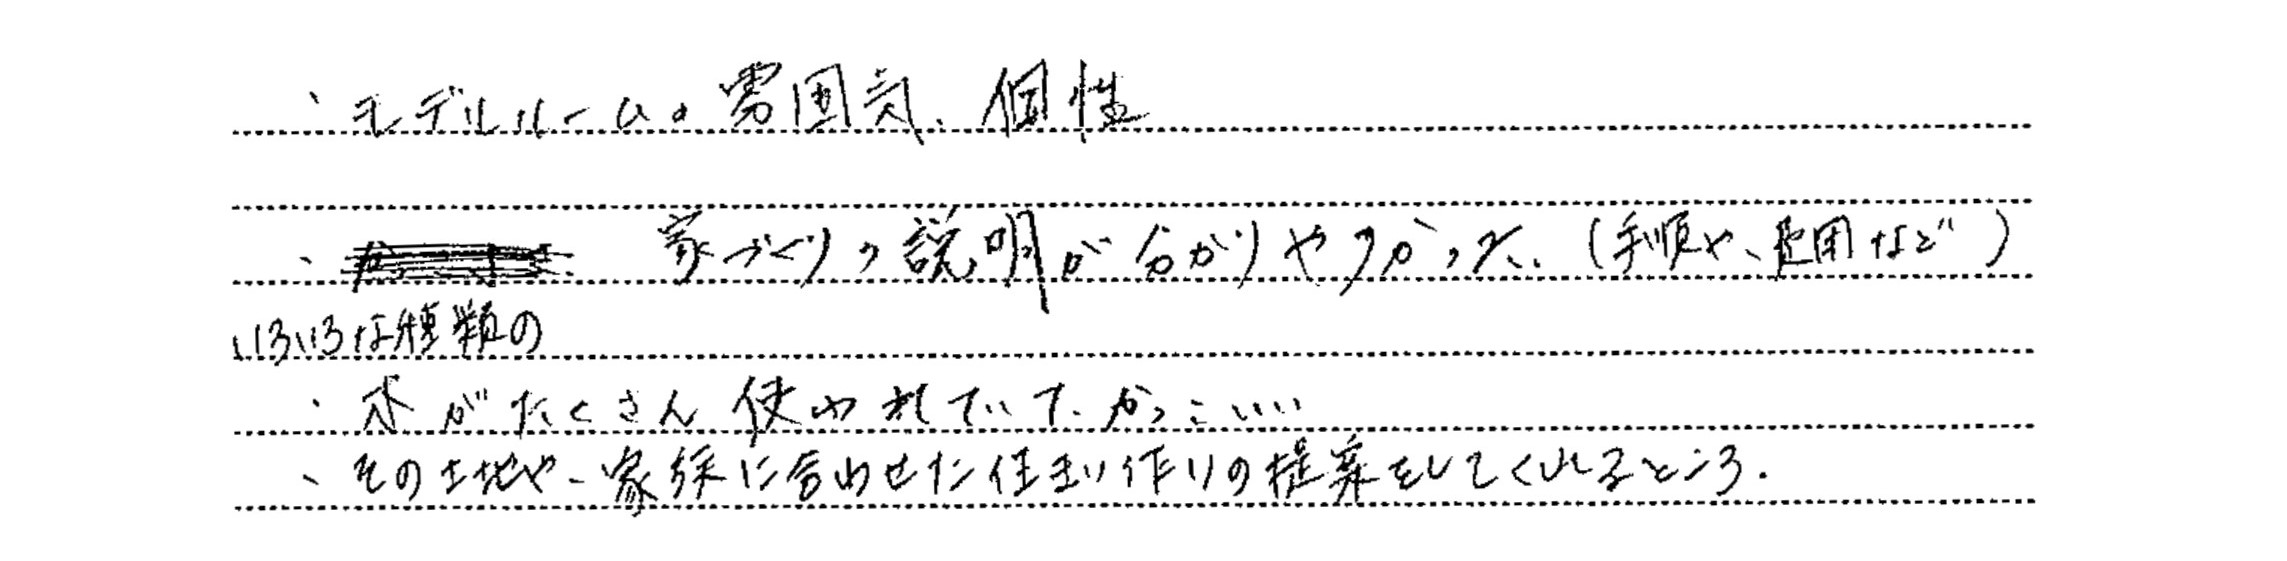 ・モデルルームの雰囲気、個性
・家づくりの説明が分かりやすかった。(手順や、費用など)
いろいろな種類の
・木がたくさん使われていて、かっこいい
・その土地や、家族に合わせた住まい作りの提案をしてくれるところ。